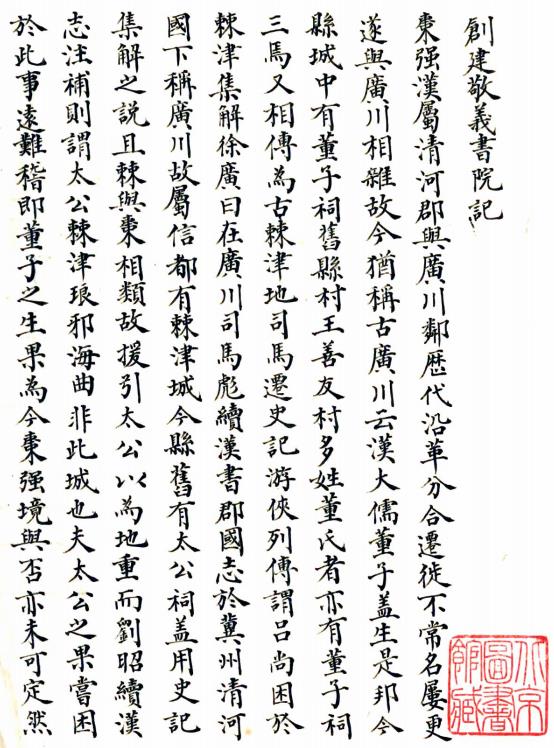 創建敬義書院記
棗强漢屬清河郡與廣川鄰歷代沿革分合遷徙不常名屢更
遂與廣川相雜故今猶稱古廣川云漢大儒董子蓋生是邦今
縣城中有董子祠舊縣村王善友村多姓董氏者亦有董子祠
三焉又相傳為古棘津地司馬遷史記游俠列傳謂吕尚困於
棘津集解徐廣曰在廣川司馬彪續漢書郡國志於冀州清河
國下稱廣川故屬信都有棘津城今縣舊有太公祠蓋用史記
集解之説且棘與棗相類故援引太公以為地重而劉昭續漢
志注補則謂太公棘津琅邪海曲非此城也夫太公之果嘗困
於此事遠難稽即董子之生果為今棗强境與否亦未可定然
北京
圖書
館藏